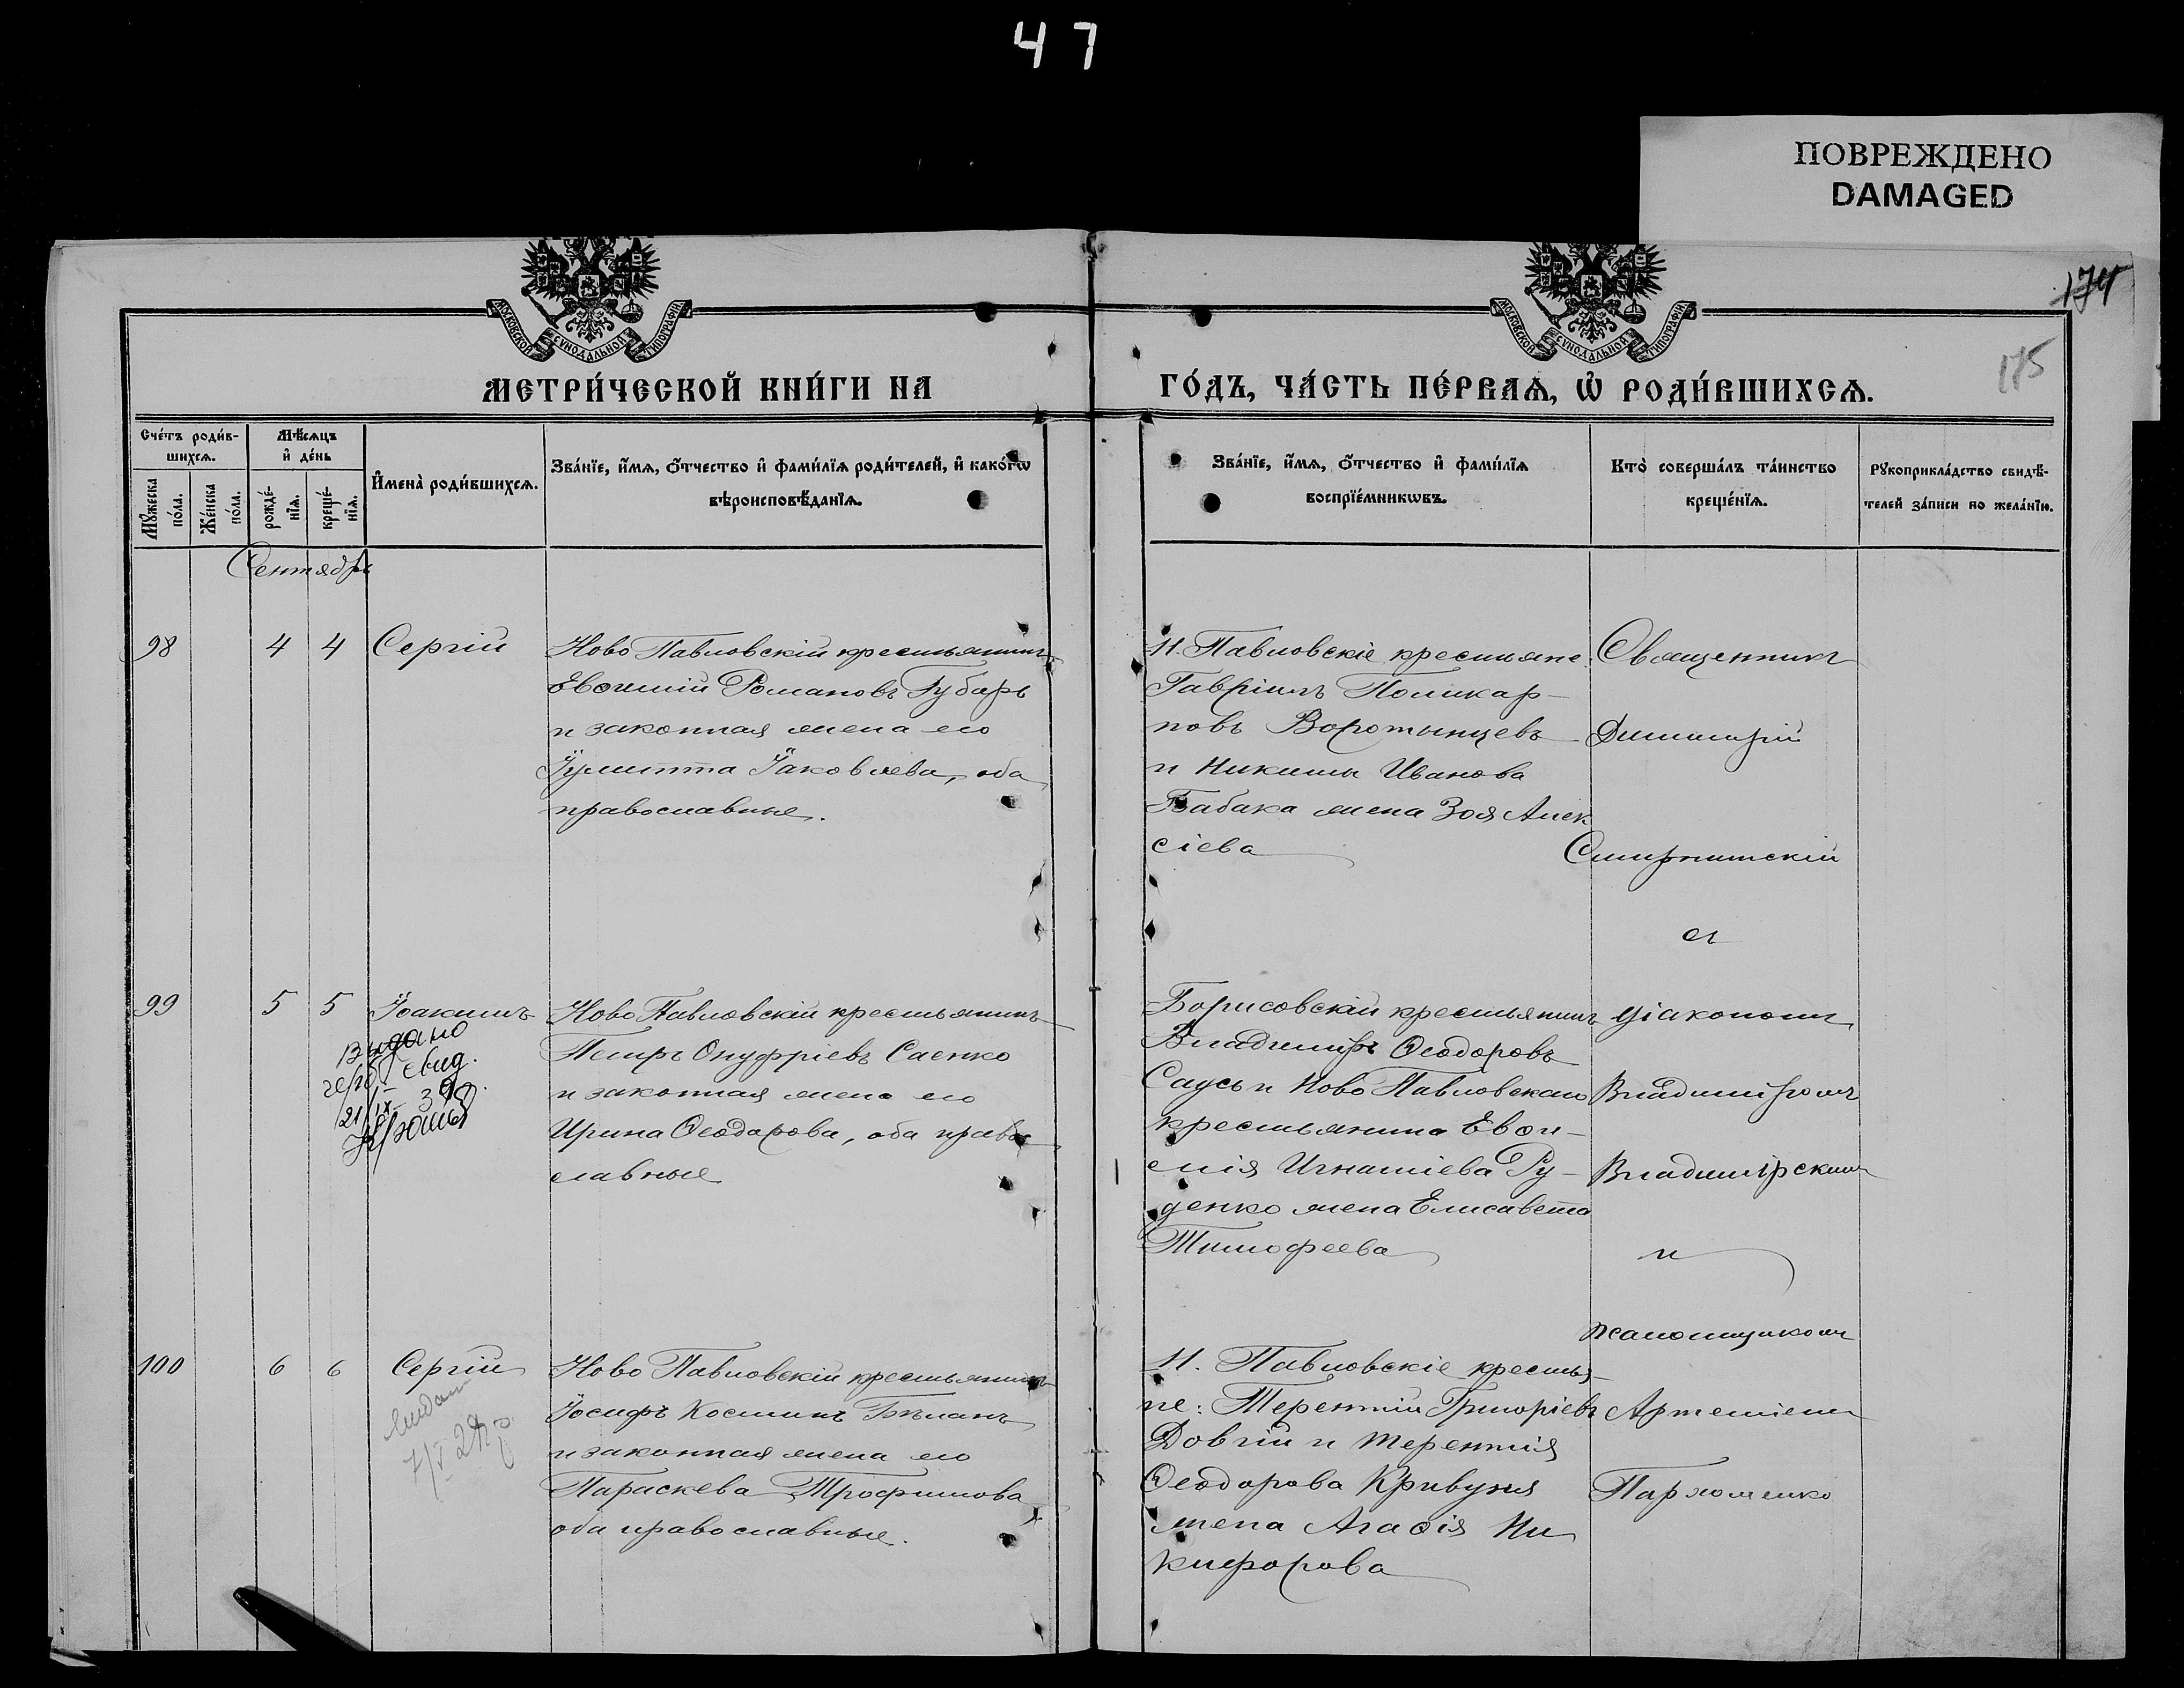 47
ПОВРЕЖДЕНО
DAMAGED
174
175
МОСКОВСКОЙ СѴНОДАЛЬНОЙ ТИПОГРАФІИ
МОСКОВСКОЙ СѴНОДАЛЬНОЙ ТИПОГРАФІИ
МЕТРИ́ЧЕСКОЙ КНИ́ГИ НА ГО́ДЪ, ЧА́СТЬ ПЕ́РВАѦ, Ѡ҆ РОДИ́ВШИХСѦ.
Сче́тъ роди́в-
шихсѧ.
Мꙋ́жеска
по́ла.
Же́нска
по́ла.
Мѣ́сѧцъ
и҆ де́нь
рожде́-
нїѧ.
креще́-
нїѧ.
И҆мена̀ роди́вшихсѧ.
Зва́нїе, и҆́мѧ, ѻ҆́тчество и҆ фами́лїѧ роди́телей, и҆ како́гѡ
вѣроисповѣ́данїѧ.
Зва́нїе, и҆́мѧ, ѻ҆́тчество и҆ фами́лїѧ
воспрїе́мникѡвъ.
Кто̀ соверша́лъ та́инство
креще́нїѧ.
Рꙋкоприкла́дство свидѣ́-
телей за́писи по жела́нїю.
Сентябрь
98 4 4 Сергій
Ново Павловскій крестьянинъ
Евѳимій Романовъ Губарь
и законная жена его
Іулитта Іаковлева, оба
православные.
Н. Павловскіе крестьяне:
Гавріилъ Поликар-
повъ Воротынцевъ
и Никиты Иванова
Бабака жена Зоя Алек
сіева
Священникъ
Димитрій
Смирнитскій
съ
99 5 5 Іоакимъ
Выдано
свид.
21/IX-39
Ново Павловскій крестьянинъ
Петръ Онуфріевъ Саенко
и законная жена его
Ирина Ѳеодорова, оба право
славные
Борисовскій крестьянинъ
Владимиръ Ѳеодоровъ
Саусь и Ново Павловскаго
крестьянина Евѳи-
мія Игнатіева Ру-
денко жена Елисавета
Тимофеева
діакономъ
Владимиромъ
Владимірскимъ
и
псаломщикомъ
100 6 6 Сергій
Ново Павловскій крестьянинъ
Іосифъ Костинъ Бѣланъ
и законная жена его
Параскева Трофимова
оба православные.
Н. Павловскіе крестья-
не: Терентій Григоріевъ
Довгій и Терентія
Ѳеодорова Кривуня
жена Агаѳія Ни
кифорова
Артеміемъ
Пархоменко